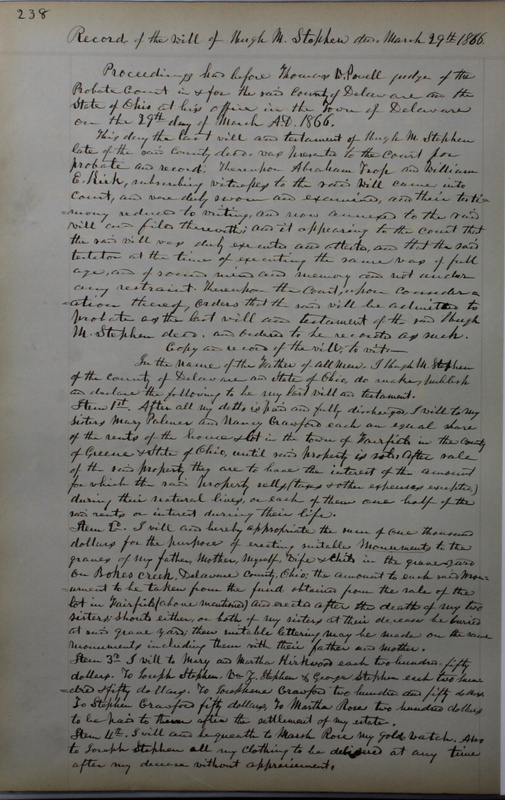 238
Record of the Will of Hugh M. Stephen decd. March 29th 1866.
Proceedings had before Thomas W. Powell judge of the
Probate Court in & for the said County of Delaware and the
State of Ohio at his office in the Town of Delaware
on the 29th day of March A.D. 1866.
This day the last will and testament of Hugh M. Stephen
late of the said County decd. was presented to the Court for
probate and record. Thereupon Abraham and William
E. Kirk, subscribing witnesses to the said Will came into
Court, and were duly sworn and examined, and their testi-
mony reduced to writing, and now annexed to the said
will and filed therewith; and it appearing to the court that
the said will was duly executed and attested, and that the said
testator at the time of executing the same was of full
age, and of sound mind and memory and not under
any restraint. Thereupon the Court, upon consider-
ation thereof, orders that the said will be admitted to
probate as the last will and testament of the said Hugh
M. Stephen decd. and ordered to be recorded as such.
Copy and record of the will; to wit:—
In the name of the Father of all Men. I Hugh M. Stephen
of the County of Delaware and State of Ohio, do make, publish
and declare the following to be my last will and testament.
Item 1st. After all my debts is paid and fully discharged, I will to my
sisters Mary Palmer and Nancy Crawford each an equal share
of the rents of the house & lot in the town of Fairfield in the County
of Greene & State of Ohio, until said property is sold, After sale
of the said property they are to have the interest of the amount
for which the said property sells, (taxes & other expenses excepted)
during their natural lives, or each of them one half of the
said rents or interest during their life.
Item 2d. I will and hereby appropriate the sum of one thousand
dollars for the purpose of erecting suitable Monuments to the
graves of my father, Mother, Myself, Wife & Child in the graveyard
on Bokes creek, Delaware County, Ohio; the amount to each said Mon-
ument to be taken from the fund obtained from the sale of the
lot in Fairfield (above mentioned) and erected after the death of my two
sisters & should either, or both of my sisters at their decease be buried
at said grave yard, then suitable lettering may be made on the same
monuments including them with their father and mother.
Item 3d. I will to Mary and Martha Kirkwood each two hundred fifty
dollars. To Joseph Stephen, Wm. J. Stephen & George Stephen each two hun-
dred & fifty dollars. To Josephene Crawford two hundred and fifty dollars.
To Stephen Crawford fifty dollars, To Martha Rose two hundred dollars
to be paid to them after the settlement of my estate.
Item 4th. I will and bequeath to Marsh Rose my Gold Watch. Also
to Joseph Stephen all my clothing to be delivered at any time
after my decease without appraisement.